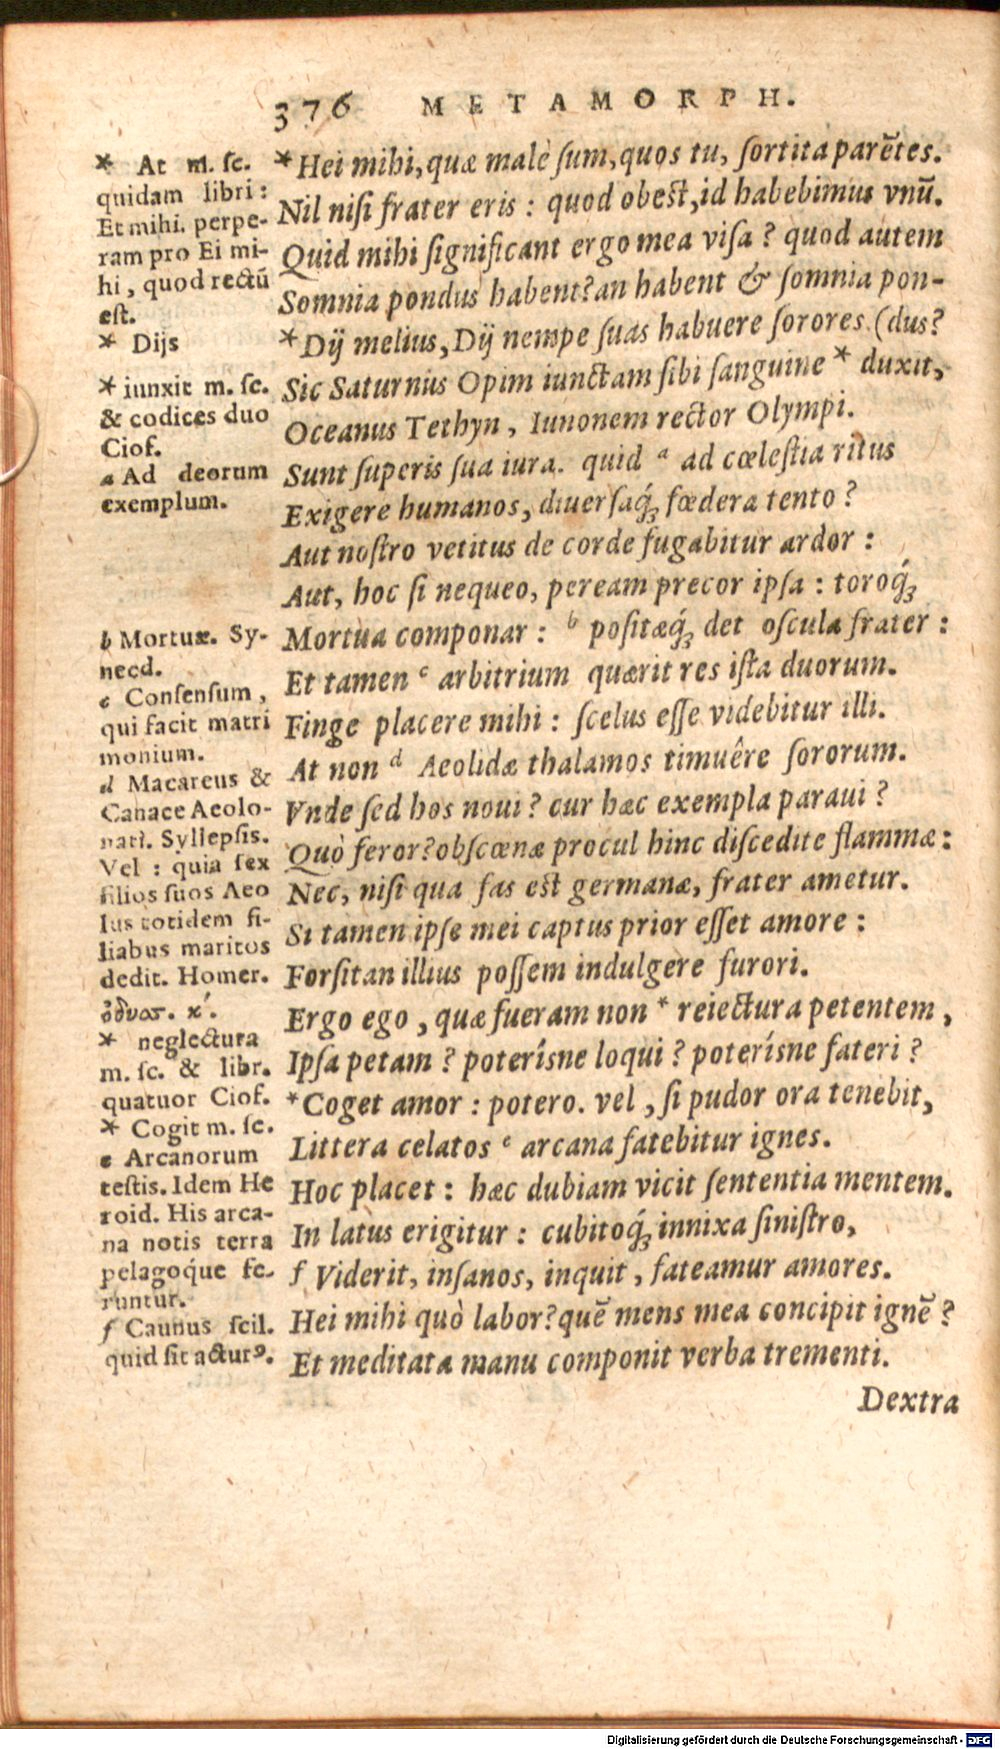 376 METAMORPH.
* At m. ſc.
quidam libri:
Et mihi. perpe-
ram pro Ei mi-
hi, quod rectū
eſt.
* Dijs
* iunxit m. ſc.
& codices duo
Cioſ.
a Ad deorum
exemplum.
b Mortuæ. Sy-
necd.
c Conſenſum,
qui facit matri
monium.
d Macareus &
Canace Aeolo-
nati. Syllepſis.
Vel: quia ſex
filios ſuos Aeo
lus totidem fi-
liabus maritos
dedit. Homer.
ὀδυσσ. κ´.
* neglectura
m. ſc. & libr.
quatuor Cioſ.
* Cogit m. ſc.
e Arcanorum
teſtis. Idem He
roid. His arca-
na notis terra
pelagoq́ue fe-
runtur.
f Caunus ſcil.
quid ſit acturꝰ.
*Hei mihi, quæ malè ſum, quos tu, ſortita parẽtes.
Nil niſi frater eris: quod obeſt, id habebimus vnũ.
Quid mihi ſignificant ergo mea viſa? quod autem
Somnia pondus habent? an habent & ſomnia pon-
*Dij melius, Dij nempe ſuas habuere ſorores. (dus?
Sic Saturnius Opim iunctam ſibi ſanguine * duxit,
Oceanus Tethyn, Iunonem rector Olympi.
Sunt ſuperis ſua iura. quid a ad cœleſtia ritus
Exigere humanos, diuerſaq́; fœdera tento?
Aut noſtro vetitus de corde fugabitur ardor:
Aut, hoc ſi nequeo, peream precor ipſa: toroq́;
Mortua componar: b poſitæq́; det oſcula frater:
Et tamen c arbitrium quærit res iſta duorum.
Finge placere mihi: ſcelus eſſe videbitur illi.
At non d Aeolidæ thalamos timuêre ſororum.
Vnde ſed hos noui? cur hæc exempla paraui?
Quò feror? obſcœnæ procul hinc diſcedite flammæ:
Nec, niſi qua fas eſt germanæ, frater ametur.
Si tamen ipſe mei captus prior eſſet amore:
Forſitan illius poſſem indulgere furori.
Ergo ego, quæ fueram non * reiectura petentem,
Ipſa petam? poterísne loqui? poterísne fateri?
*Coget amor: potero. vel, ſi pudor ora tenebit,
Littera celatos e arcana fatebitur ignes.
Hoc placet: hæc dubiam vicit ſententia mentem.
In latus erigitur: cubitoq́; innixa ſiniſtro,
f Viderit, inſanos, inquit, fateamur amores.
Hei mihi quò labor? quẽ mens mea concipit ignẽ?
Et meditata manu componit verba trementi.
Dextra
Digitalisierung gefördert durch die Deutsche Forschungsgemeinschaft - DFG